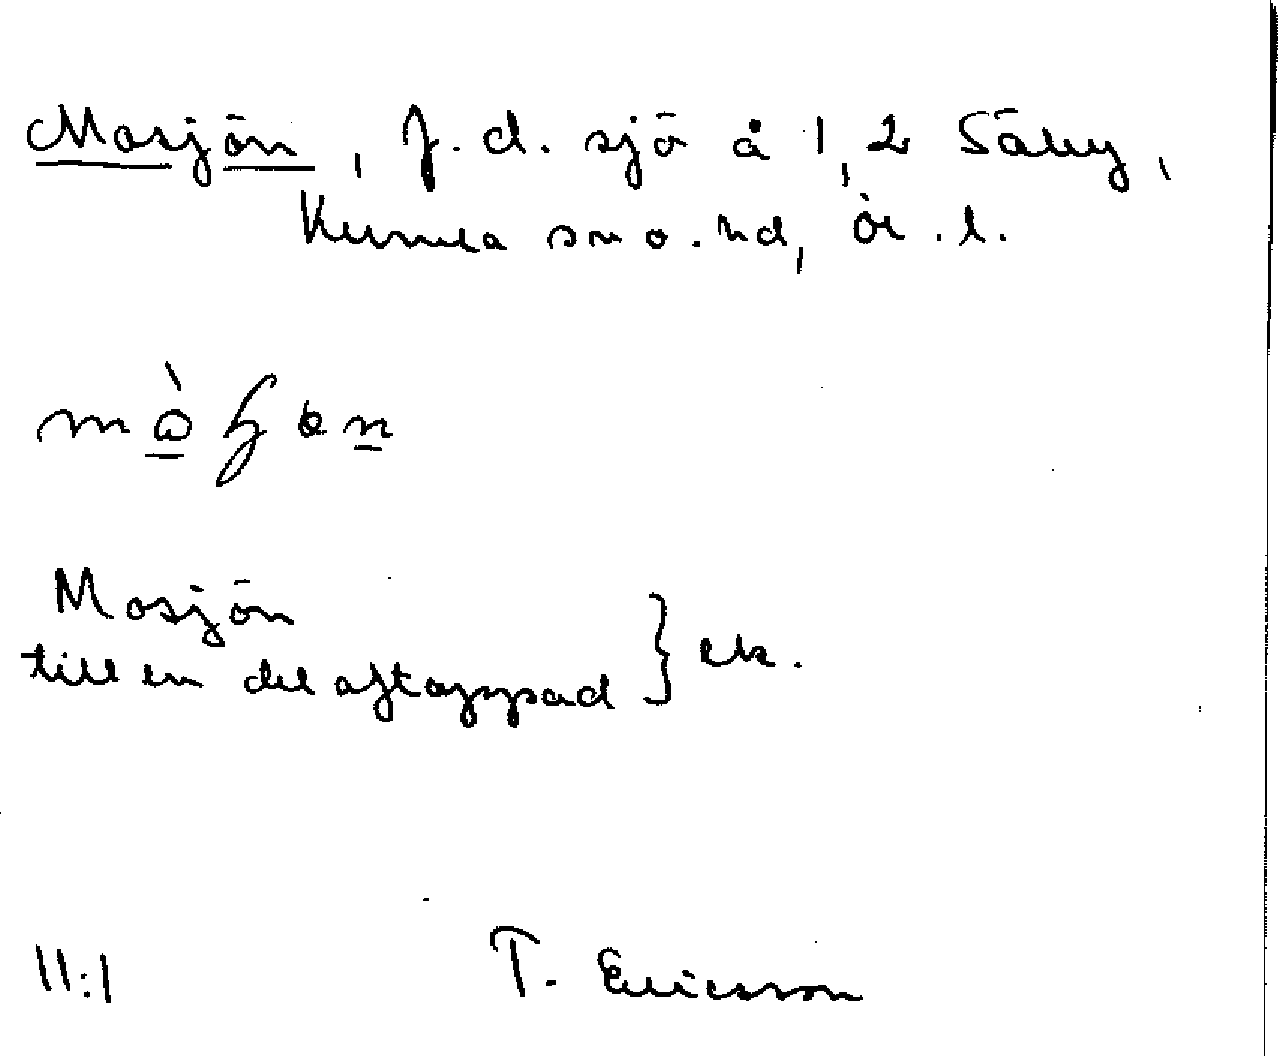 Mosjön, f.d. sjö å 1,2 Säby,
Kumla sn o. hd, Ör.l.
Mosjön
till en del aftappad } ek.
11:1 T. Ericsson